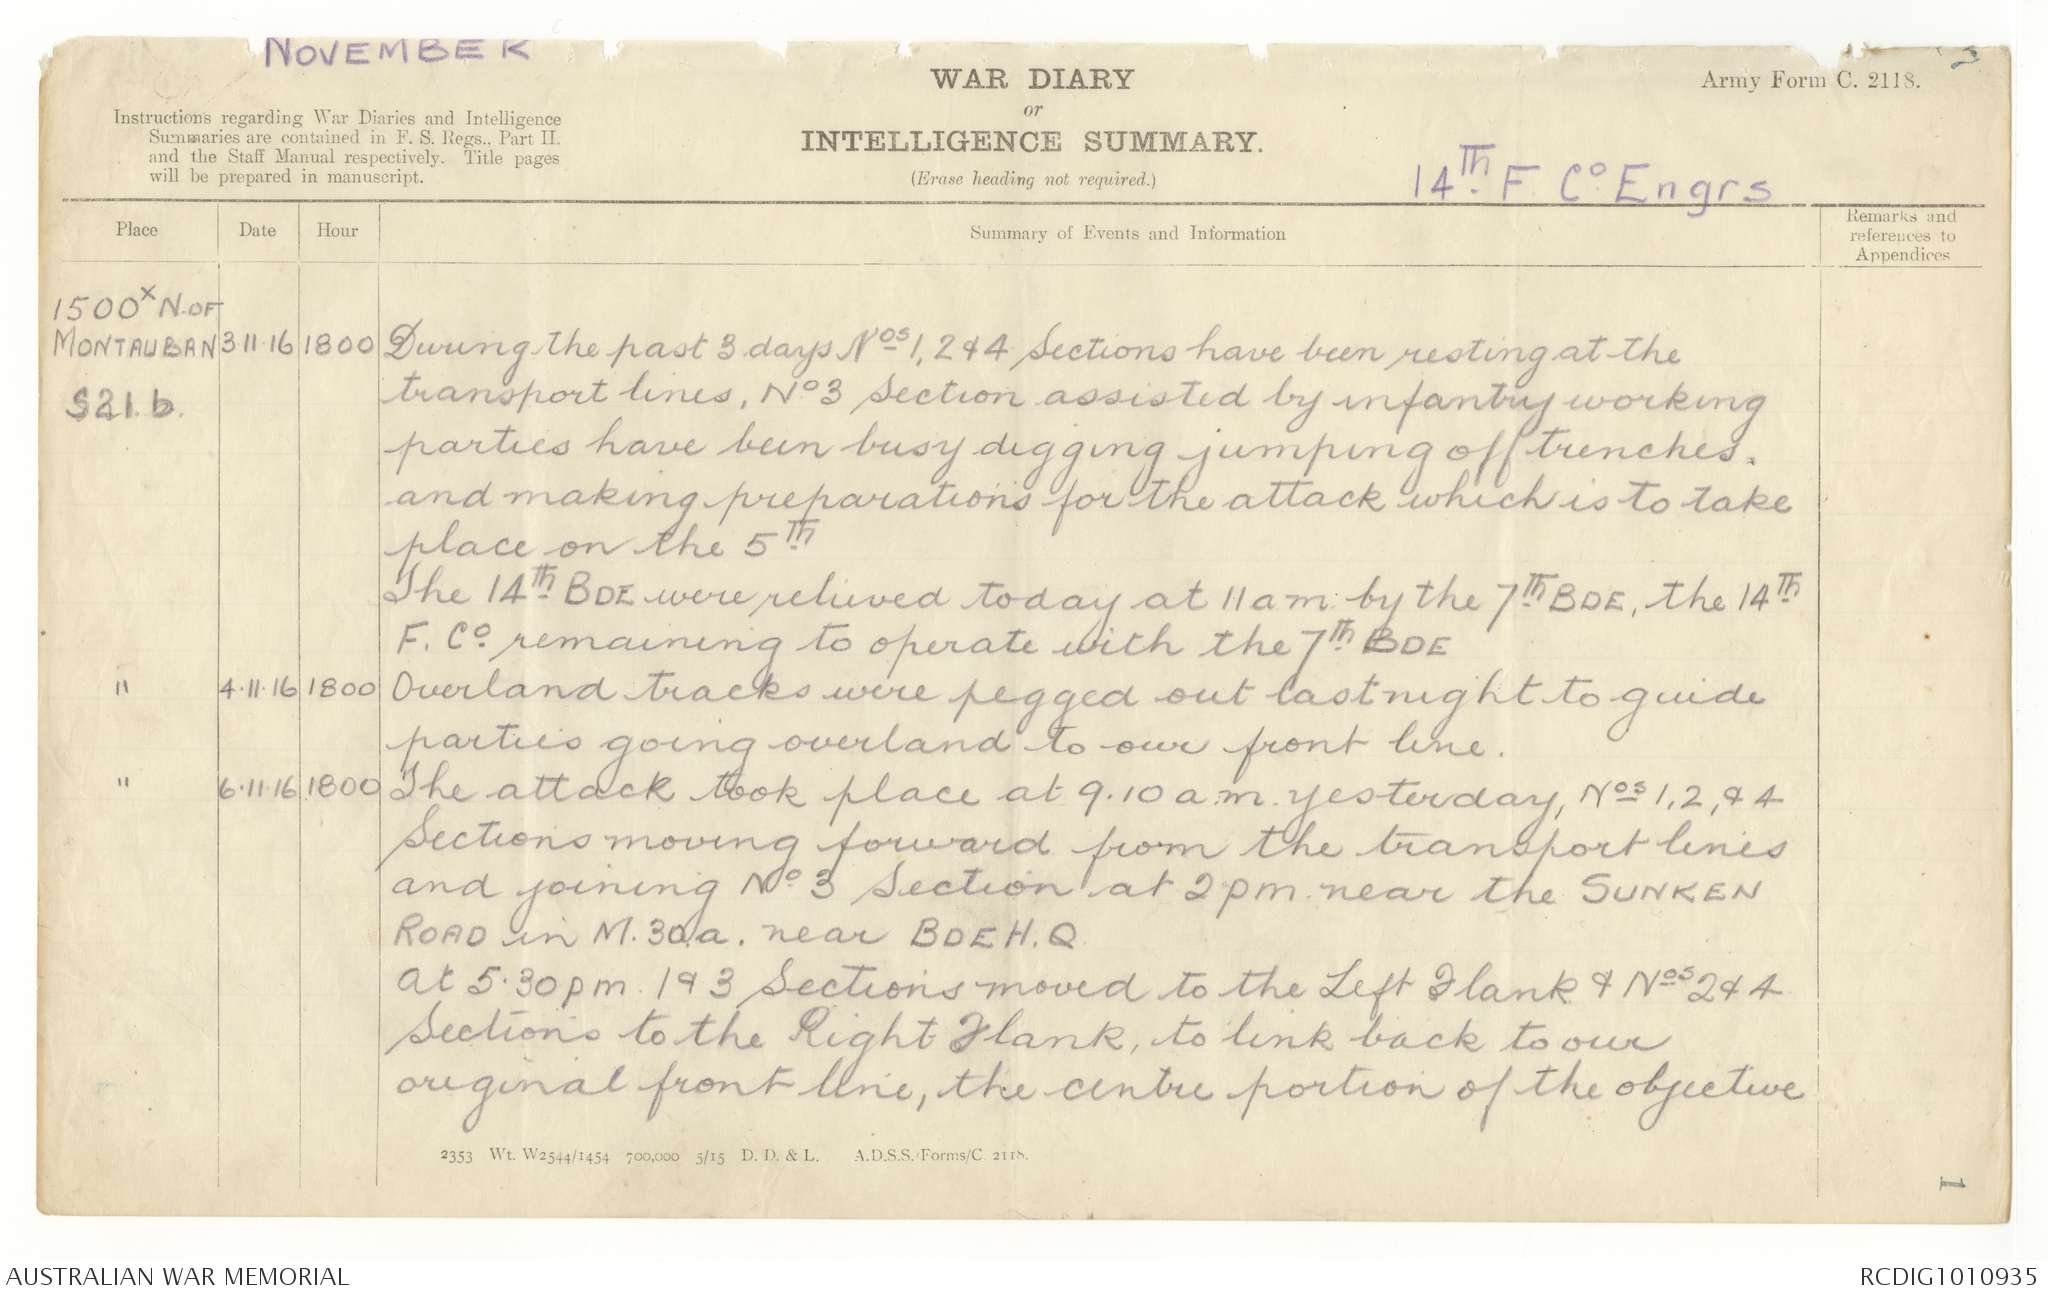 NOVEMBER
WAR DIARY
or
INTELLIGENCE SUMMARY.
(Erase heading not required.)
Army Form C. 2118.
Instructions regarding War Diaries and Intelligence
Summaries are contained in F. S. Regs., Part II.
and the Staff Manual respectively. Title pages
will be prepared in manuscript.
14TH. F. Co. Engrs
Place Date Hour Summary of Events and Information Remarks and
references to
Appendices
1500x N. OF
MONTAUBAN 3.11.16 1800 During the past 3 days Nos 1, 2 & 4 Sections have been resting at the
S21.b. transport lines, No 3 Section assisted by infantry working
parties have been busy digging jumping off trenches.
and making preparations for the attack which is to take
place on the 5TH.
The 14th. BDE were relieved today at 11 am. by the 7TH. BDE, the 14TH
F. Co. remaining to operate with the 7th. BDE
" 4.11.16 1800 Overland tracks were pegged out last night to guide
parties going overland to our front line.
" 6.11.16 1800 The attack took place at 9.10 a.m. yesterday, Nos 1, 2, & 4
Sections moving forward from the transport lines
and joining No. 3 Section at 2 pm. near the SUNKEN
ROAD in M.30.a. near BDE H.Q
At 5.30 pm. 1 & 3 Sections moved to the Left Flank & Nos 2 & 4
Sections to the Right Flank, to link back to our
original front line, the centre portion of the objective
2353 Wt. W2544/1454 700,000 5/15 D. D. & L. A.D.S.S./Forms/C. 2118.
1
AUSTRALIAN WAR MEMORIAL
RCDIG1010935